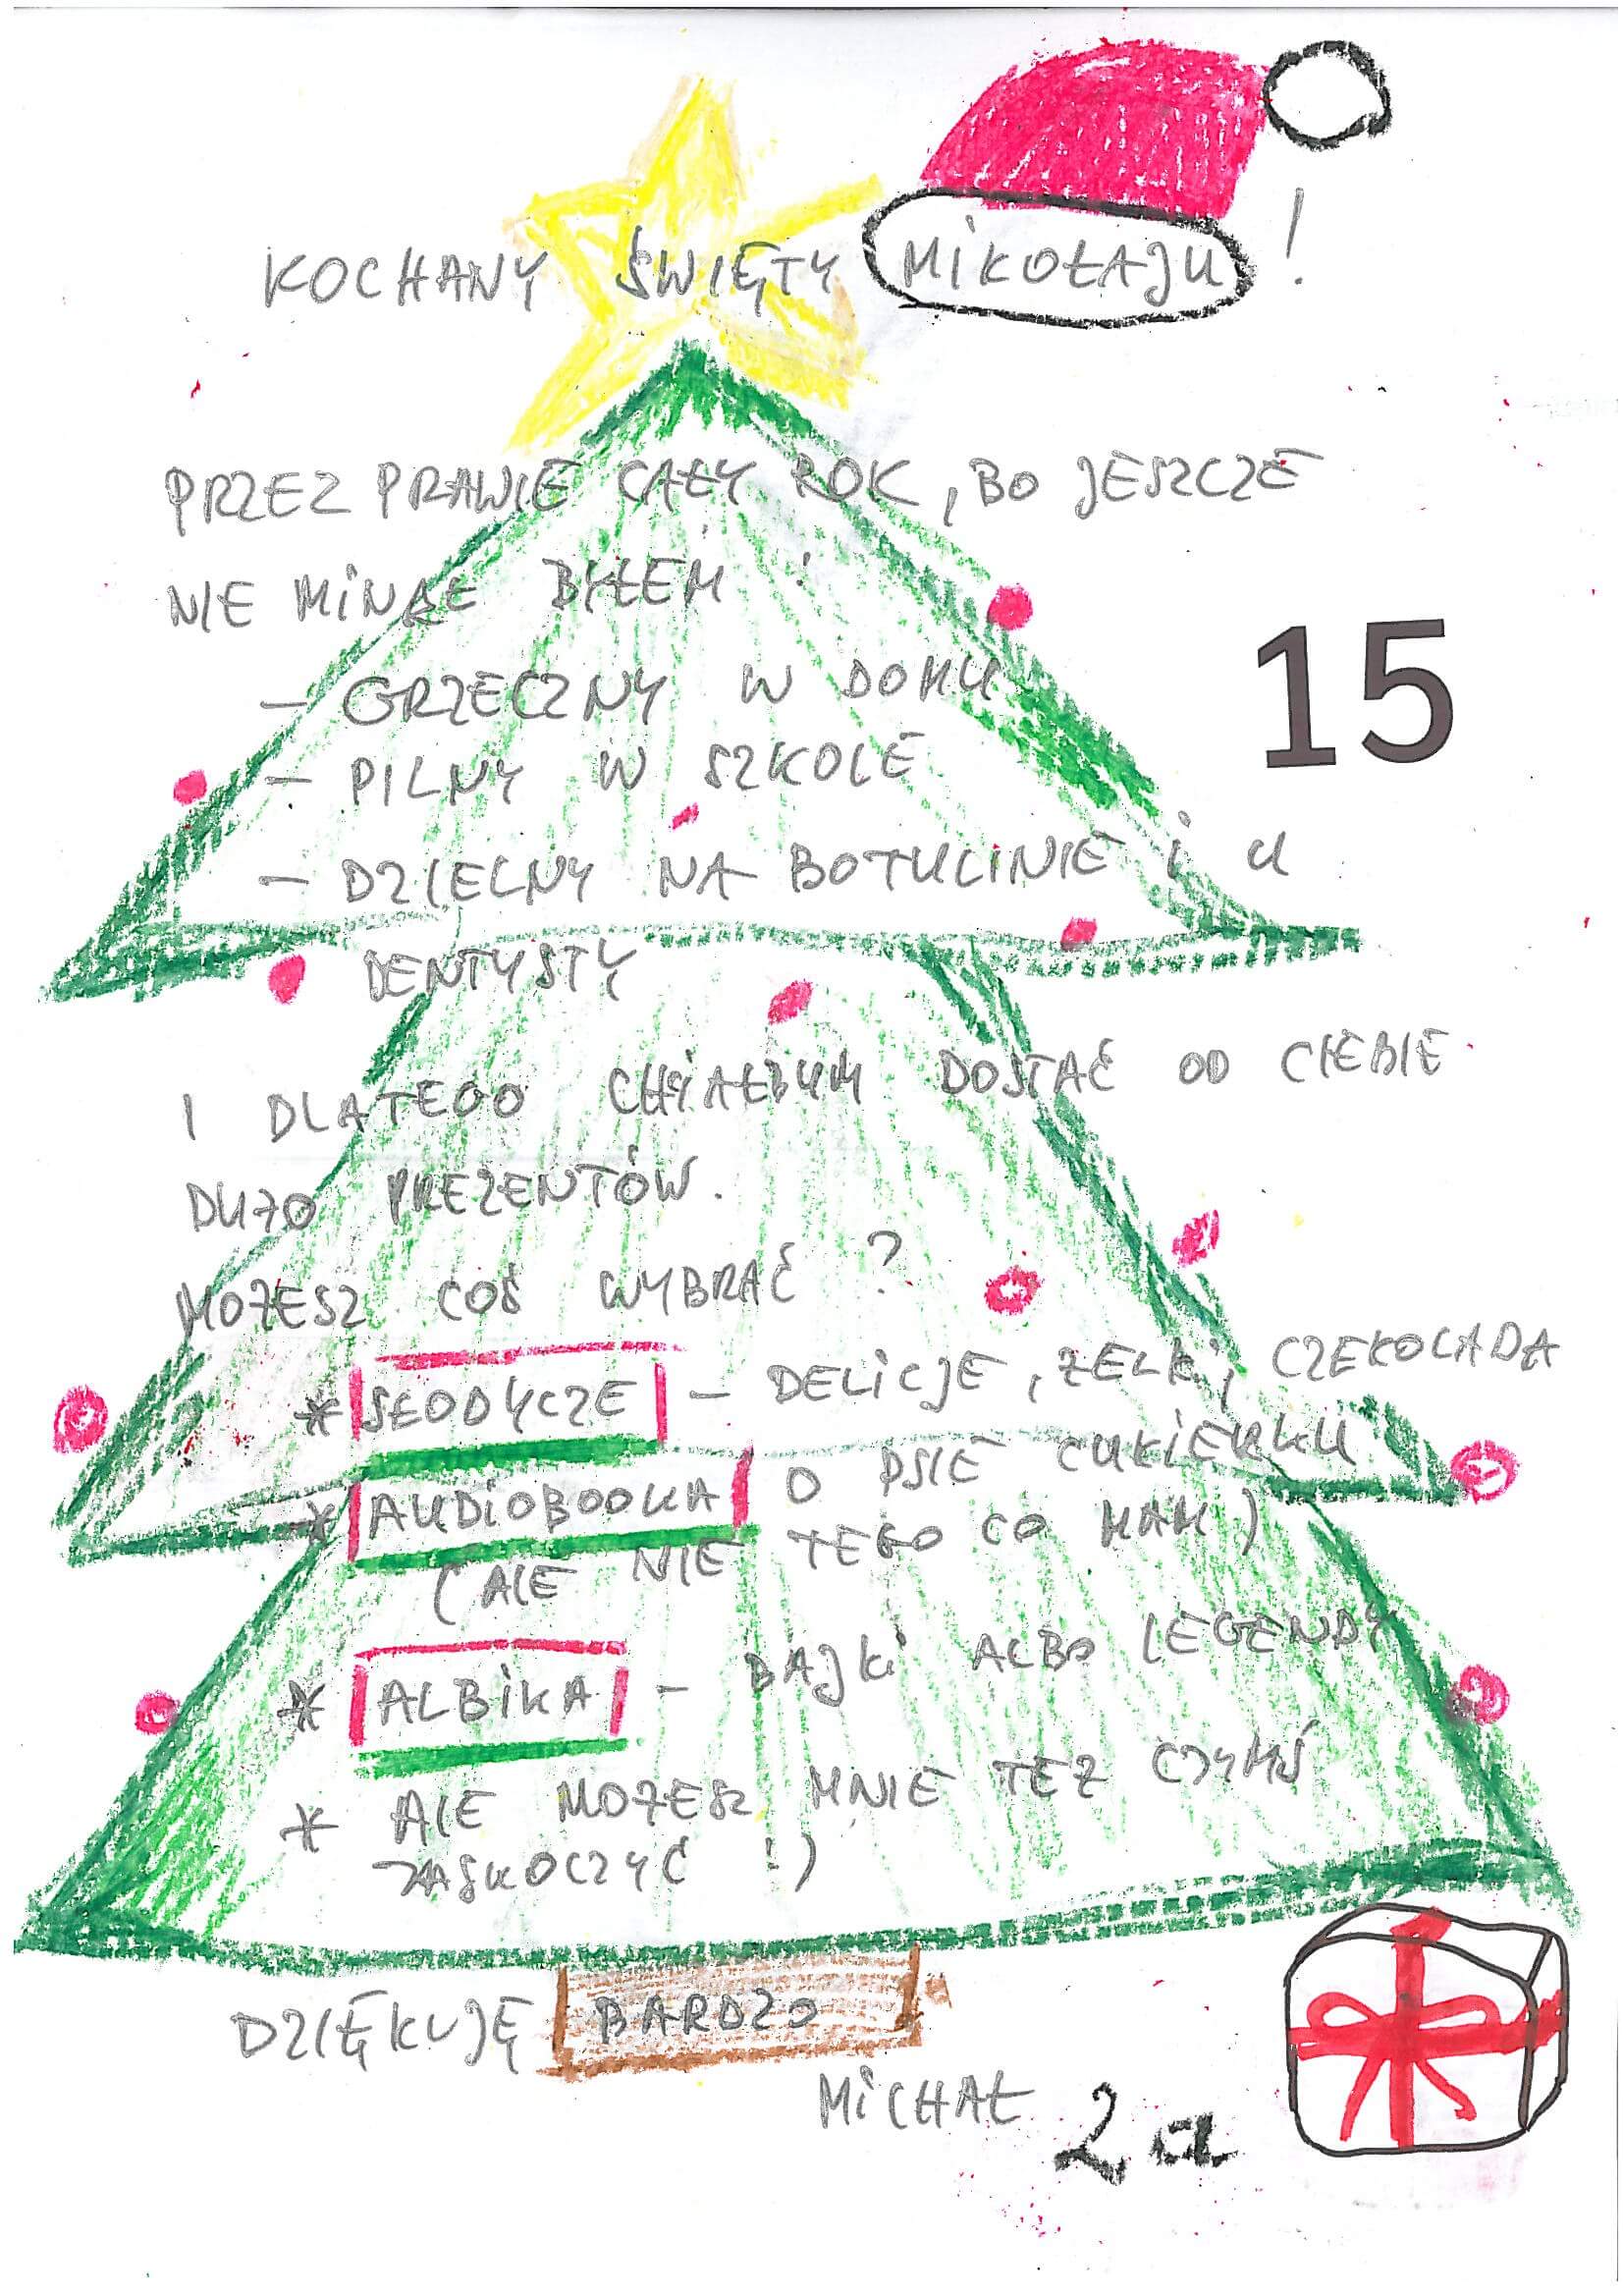 KOCHANY ŚWIĘTY MIKOŁAJU!
PRZEZ PRAWIE CAŁY ROK, BO JESZCZE
NIE MINĄŁ BYŁEM :
15
- GRZECZNY W DOMU
- PILNY W SZKOLE
- DZIELNY NA BOTULINIE i U
DENTYSTY
I DLATEGO CHCIAŁBYM DOSTAĆ OD CIEBIE
DUŻO PREZENTÓW.
MOŻESZ COŚ WYBRAĆ ?
* SŁODYCZE - DELICJE, ŻELKI, CZEKOLADA
* AUDIOBOOKA O PSIE CUKIERKU
(ALE NIE TEGO CO MAM)
* ALBIKA - BAJKI ALBO LEGENDY
* ALE MOŻESZ MNIE TEŻ CZYMŚ
ZASKOCZYĆ :)
DZIĘKUJĘ BARDZO
MICHAŁ 2a